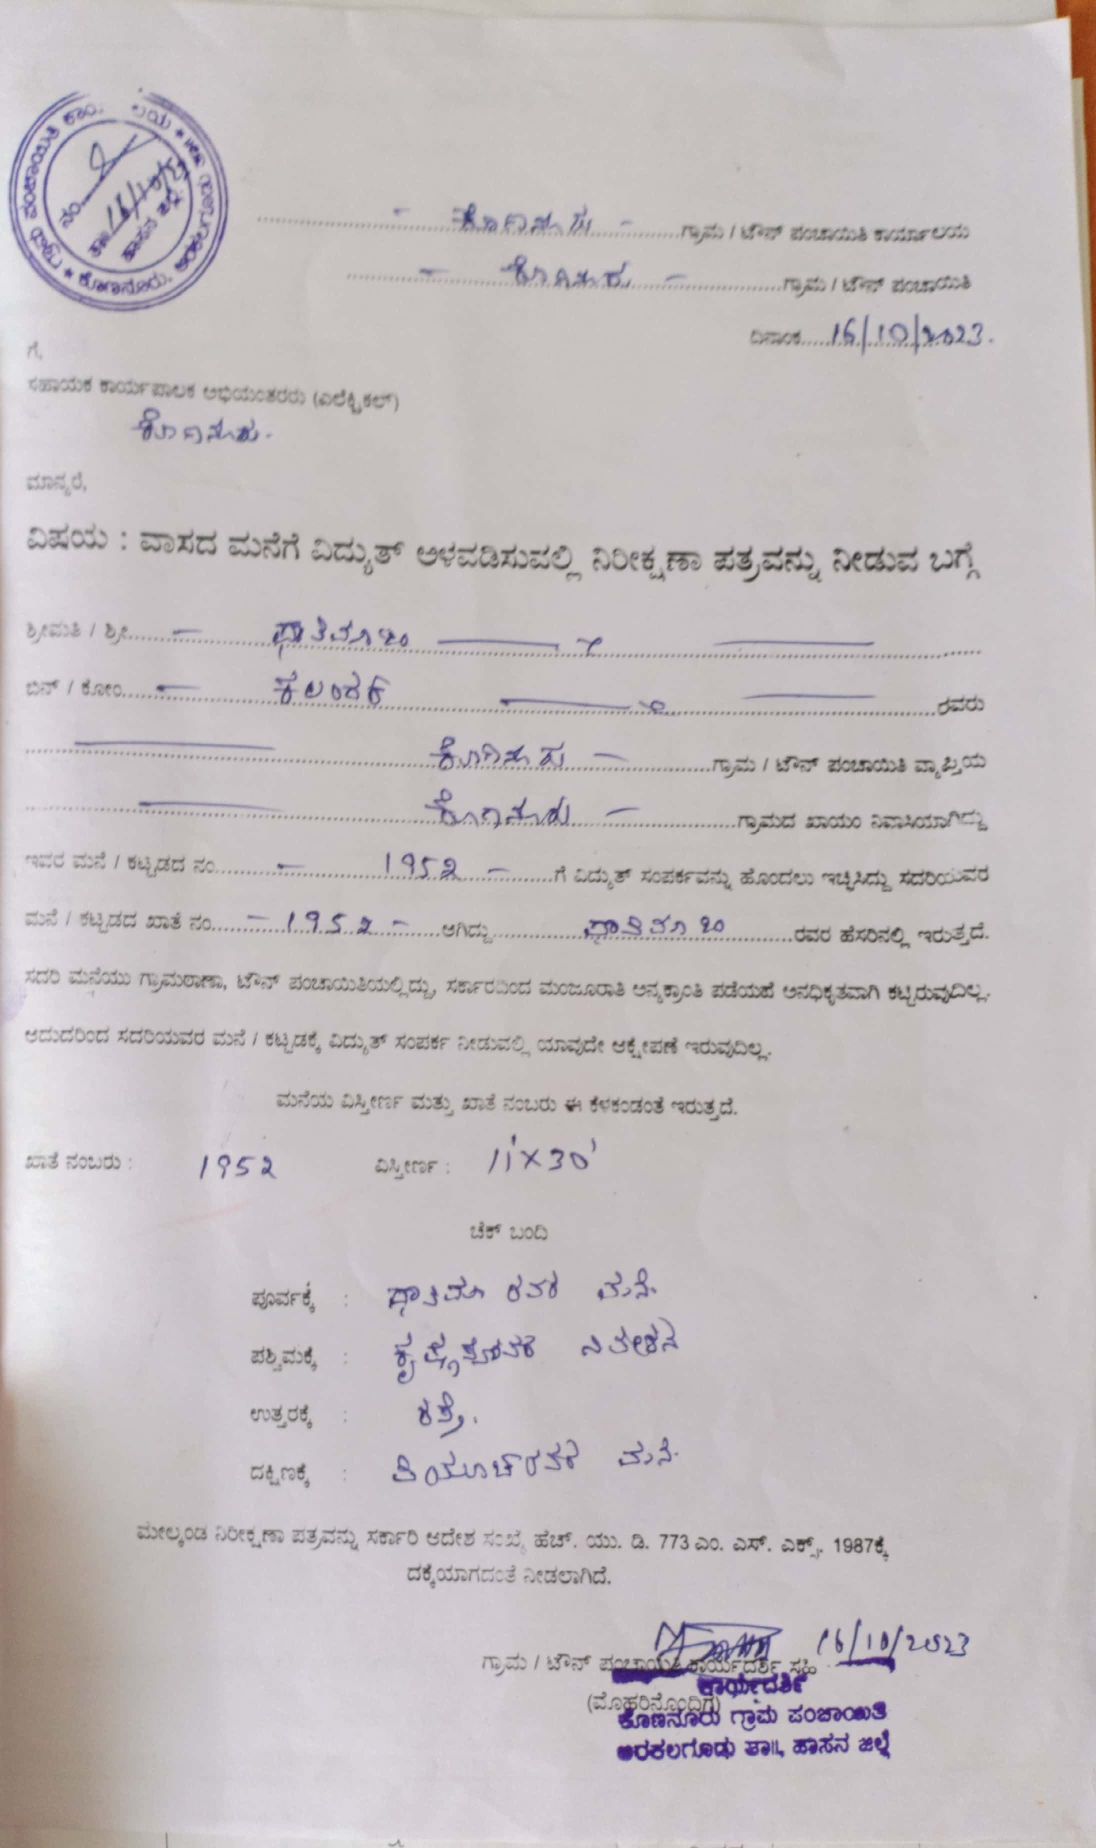 ಗ್ರಾಮ ಪಂಚಾಯಿತಿ ಕಾರ್ಯಾಲಯ * ಅರಕಲಗೂಡು ತಾ॥ * ಕೊಣನೂರು.
ನಂ.
ತಾ
ಹಾಸನ ಜಿಲ್ಲೆ
- ಕೊಣನೂರು - ಗ್ರಾಮ / ಟೌನ್ ಪಂಚಾಯಿತಿ ಕಾರ್ಯಾಲಯ
- ಕೊಣನೂರು - ಗ್ರಾಮ / ಟೌನ್ ಪಂಚಾಯಿತಿ
ದಿನಾಂಕ.....16/10/2023.
ಗೆ,
ಸಹಾಯಕ ಕಾರ್ಯಪಾಲಕ ಅಭಿಯಂತರರು (ಎಲೆಕ್ಟ್ರಿಕಲ್)
ಕೊಣನೂರು.
ಮಾನ್ಯರೆ,
ವಿಷಯ : ವಾಸದ ಮನೆಗೆ ವಿದ್ಯುತ್ ಅಳವಡಿಸುವಲ್ಲಿ ನಿರೀಕ್ಷಣಾ ಪತ್ರವನ್ನು ನೀಡುವ ಬಗ್ಗೆ
ಶ್ರೀಮತಿ / ಶ್ರೀ..... - ಫಾತಿಮಾಬಿ
ಬಿನ್ / ಕೋಂ..... - ಕಲಂದರ್ ರವರು
ಕೊಣನೂರು - ಗ್ರಾಮ / ಟೌನ್ ಪಂಚಾಯಿತಿ ವ್ಯಾಪ್ತಿಯ
ಕೊಣನೂರು - ಗ್ರಾಮದ ಖಾಯಂ ನಿವಾಸಿಯಾಗಿದ್ದು
ಇವರ ಮನೆ / ಕಟ್ಟಡದ ನಂ..... - 1952 - ಗೆ ವಿದ್ಯುತ್ ಸಂಪರ್ಕವನ್ನು ಹೊಂದಲು ಇಚ್ಛಿಸಿದ್ದು ಸದರಿಯವರ
ಮನೆ / ಕಟ್ಟಡದ ಖಾತೆ ನಂ..... - 1952 - ಆಗಿದ್ದು ..... ಫಾತಿಮಾಬಿ ..... ರವರ ಹೆಸರಿನಲ್ಲಿ ಇರುತ್ತದೆ.
ಸದರಿ ಮನೆಯು ಗ್ರಾಮಠಾಣಾ, ಟೌನ್ ಪಂಚಾಯಿತಿಯಲ್ಲಿದ್ದು, ಸರ್ಕಾರದಿಂದ ಮಂಜೂರಾತಿ ಅನ್ಯಕ್ರಾಂತಿ ಪಡೆಯಹೆ ಅನಧಿಕೃತವಾಗಿ ಕಟ್ಟಿರುವುದಿಲ್ಲ.
ಆದುದರಿಂದ ಸದರಿಯವರ ಮನೆ / ಕಟ್ಟಡಕ್ಕೆ ವಿದ್ಯುತ್ ಸಂಪರ್ಕ ನೀಡುವಲ್ಲಿ ಯಾವುದೇ ಆಕ್ಷೇಪಣೆ ಇರುವುದಿಲ್ಲ.
ಮನೆಯ ವಿಸ್ತೀರ್ಣ ಮತ್ತು ಖಾತೆ ನಂಬರು ಈ ಕೆಳಕಂಡಂತೆ ಇರುತ್ತದೆ.
ಖಾತೆ ನಂಬರು : 1952 ವಿಸ್ತೀರ್ಣ : 11'×30'
ಚೆಕ್ ಬಂದಿ
ಪೂರ್ವಕ್ಕೆ : ಫಾತಿಮಾ ರವರ ಮನೆ.
ಪಶ್ಚಿಮಕ್ಕೆ : ನಿವೇಶನ
ಉತ್ತರಕ್ಕೆ : ರಸ್ತೆ.
ದಕ್ಷಿಣಕ್ಕೆ : ಮನೆ.
ಮೇಲ್ಕಂಡ ನಿರೀಕ್ಷಣಾ ಪತ್ರವನ್ನು ಸರ್ಕಾರಿ ಆದೇಶ ಸಂಖ್ಯೆ ಹೆಚ್. ಯು. ಡಿ. 773 ಎಂ. ಎಸ್. ಎಕ್ಸ್. 1987ಕ್ಕೆ
ದಕ್ಕೆಯಾಗದಂತೆ ನೀಡಲಾಗಿದೆ.
16/10/2023
ಗ್ರಾಮ / ಟೌನ್ ಪಂಚಾಯಿತಿ ಕಾರ್ಯದರ್ಶಿ ಸಹಿ
(ಮೊಹರಿನೊಂದಿಗೆ)
ಕಾರ್ಯದರ್ಶಿ
ಕೊಣನೂರು ಗ್ರಾಮ ಪಂಚಾಯಿತಿ
ಅರಕಲಗೂಡು ತಾ॥, ಹಾಸನ ಜಿಲ್ಲೆ